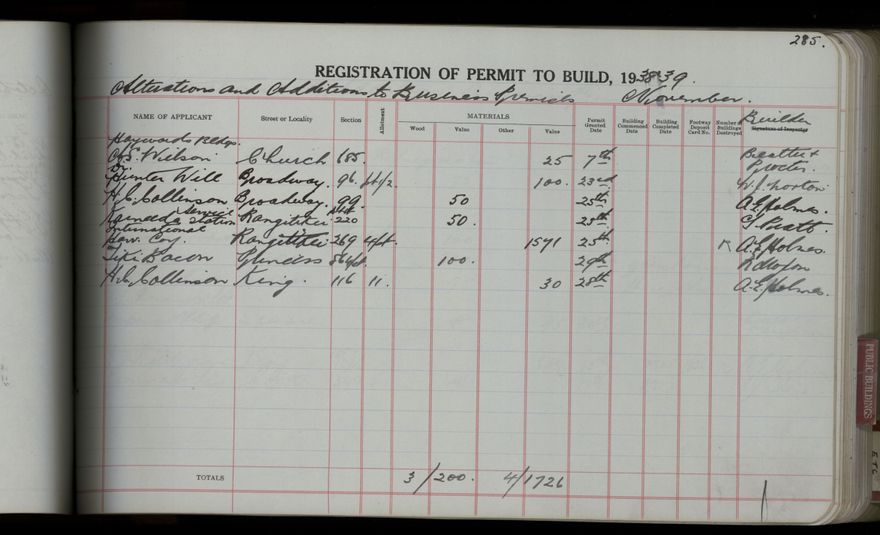 285.
REGISTRATION OF PERMIT TO BUILD, 1938-39.
Alterations and Additions to Business Premises November.
NAME OF APPLICANT Street or Locality Section Allotment MATERIALS Wood Value Other Value Permit Granted Date Building Commenced Date Building Completed Date Footway Deposit Card No. Number of Buildings Destroyed Builder Signature of Inspector
Haywards Bldgs.
Wilson Church 685. 25 7th Beattie &
Procter.
Hunter Will Broadway. 96. pt 1/2. 100. 23rd W. J. Norton
H. C. Collinson Broadway. 99. 50 25th A. E. Holmes.
Service Station Rangitikei 220 50. 23th G Pratt
International
Coy. Rangitikei 269 4pt. 1571 25th A. E. Holmes.
Bacon Princess 100. 29th
H. C. Collinson King. 116 11. 30 28th A. E. Holmes.
TOTALS 3/200. 4/1726
PUBLIC BUILDINGS